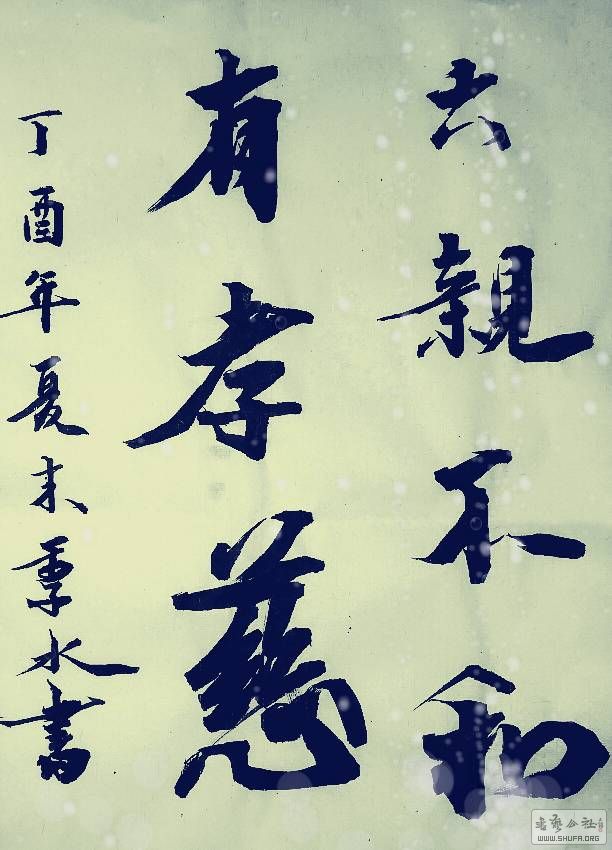 六親不和
有孝慈
丁酉年夏末覃水書
書藝公社
WWW.SHUFA.ORG